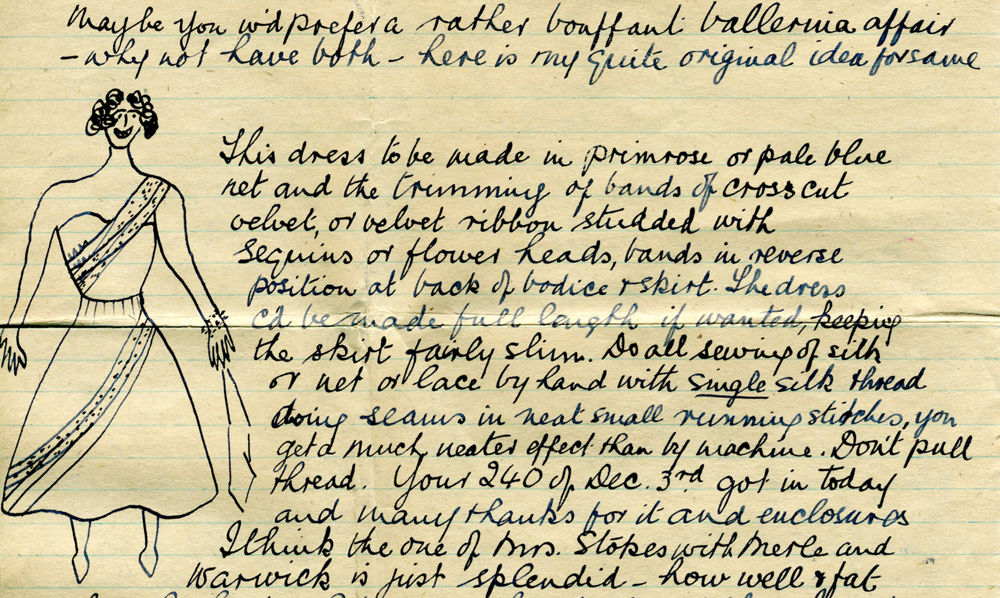 Maybe you wd prefer a rather bouffant ballerina affair
- why not have both - here is my quite original idea for same
This dress to be made in primrose or pale blue
net and the trimming of bands of crosscut
velvet, or velvet ribbon studded with
sequins or flower heads, bands in reverse
position at back of bodice & skirt. The dress
cd be made full length if wanted, keeping
the skirt fairly slim. Do all sewing of silk
or net or lace by hand with single silk thread
doing seams in neat small running stitches, you
get a much neater effect than by machine. Don't pull
thread. Your 240 of Dec. 3rd got in today
and many thanks for it and enclosures
I think the one of Mrs. Stokes with Merle and
Warwick is just splendid - how well & fat